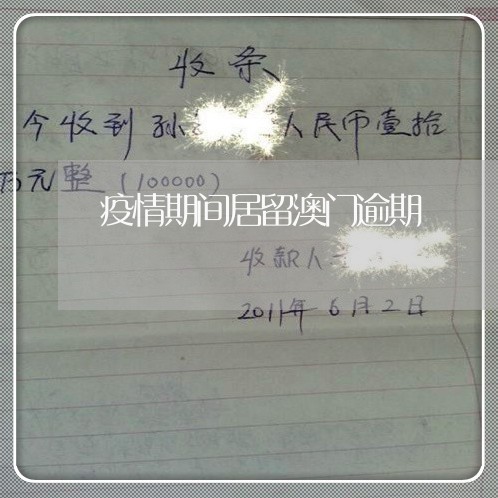 收条
今收到孙 人民币壹拾
万元整(100000)
疫情期间居留澳门逾期
收款人
2011年6月2日